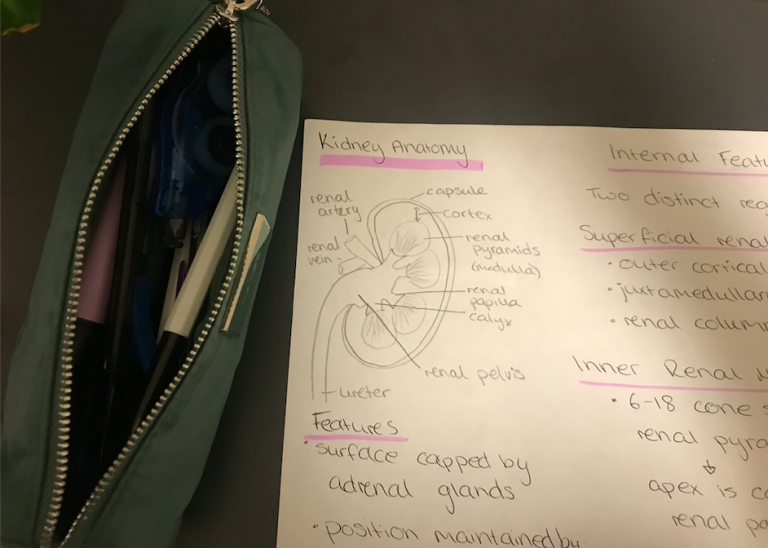 Kidney Anatomy
renal
artery
capsule
cortex
renal
vein
renal
pyramids
(medulla)
renal
papilla
calyx
renal pelvis
ureter
Features
• surface capped by
adrenal glands
• position maintained by
Internal Featu
Two distinct reg
Superficial renal
• outer cortical
• juxtamedullar
• renal colum
Inner Renal M
• 6-18 cone s
renal pyra
↓
apex is co
renal pa